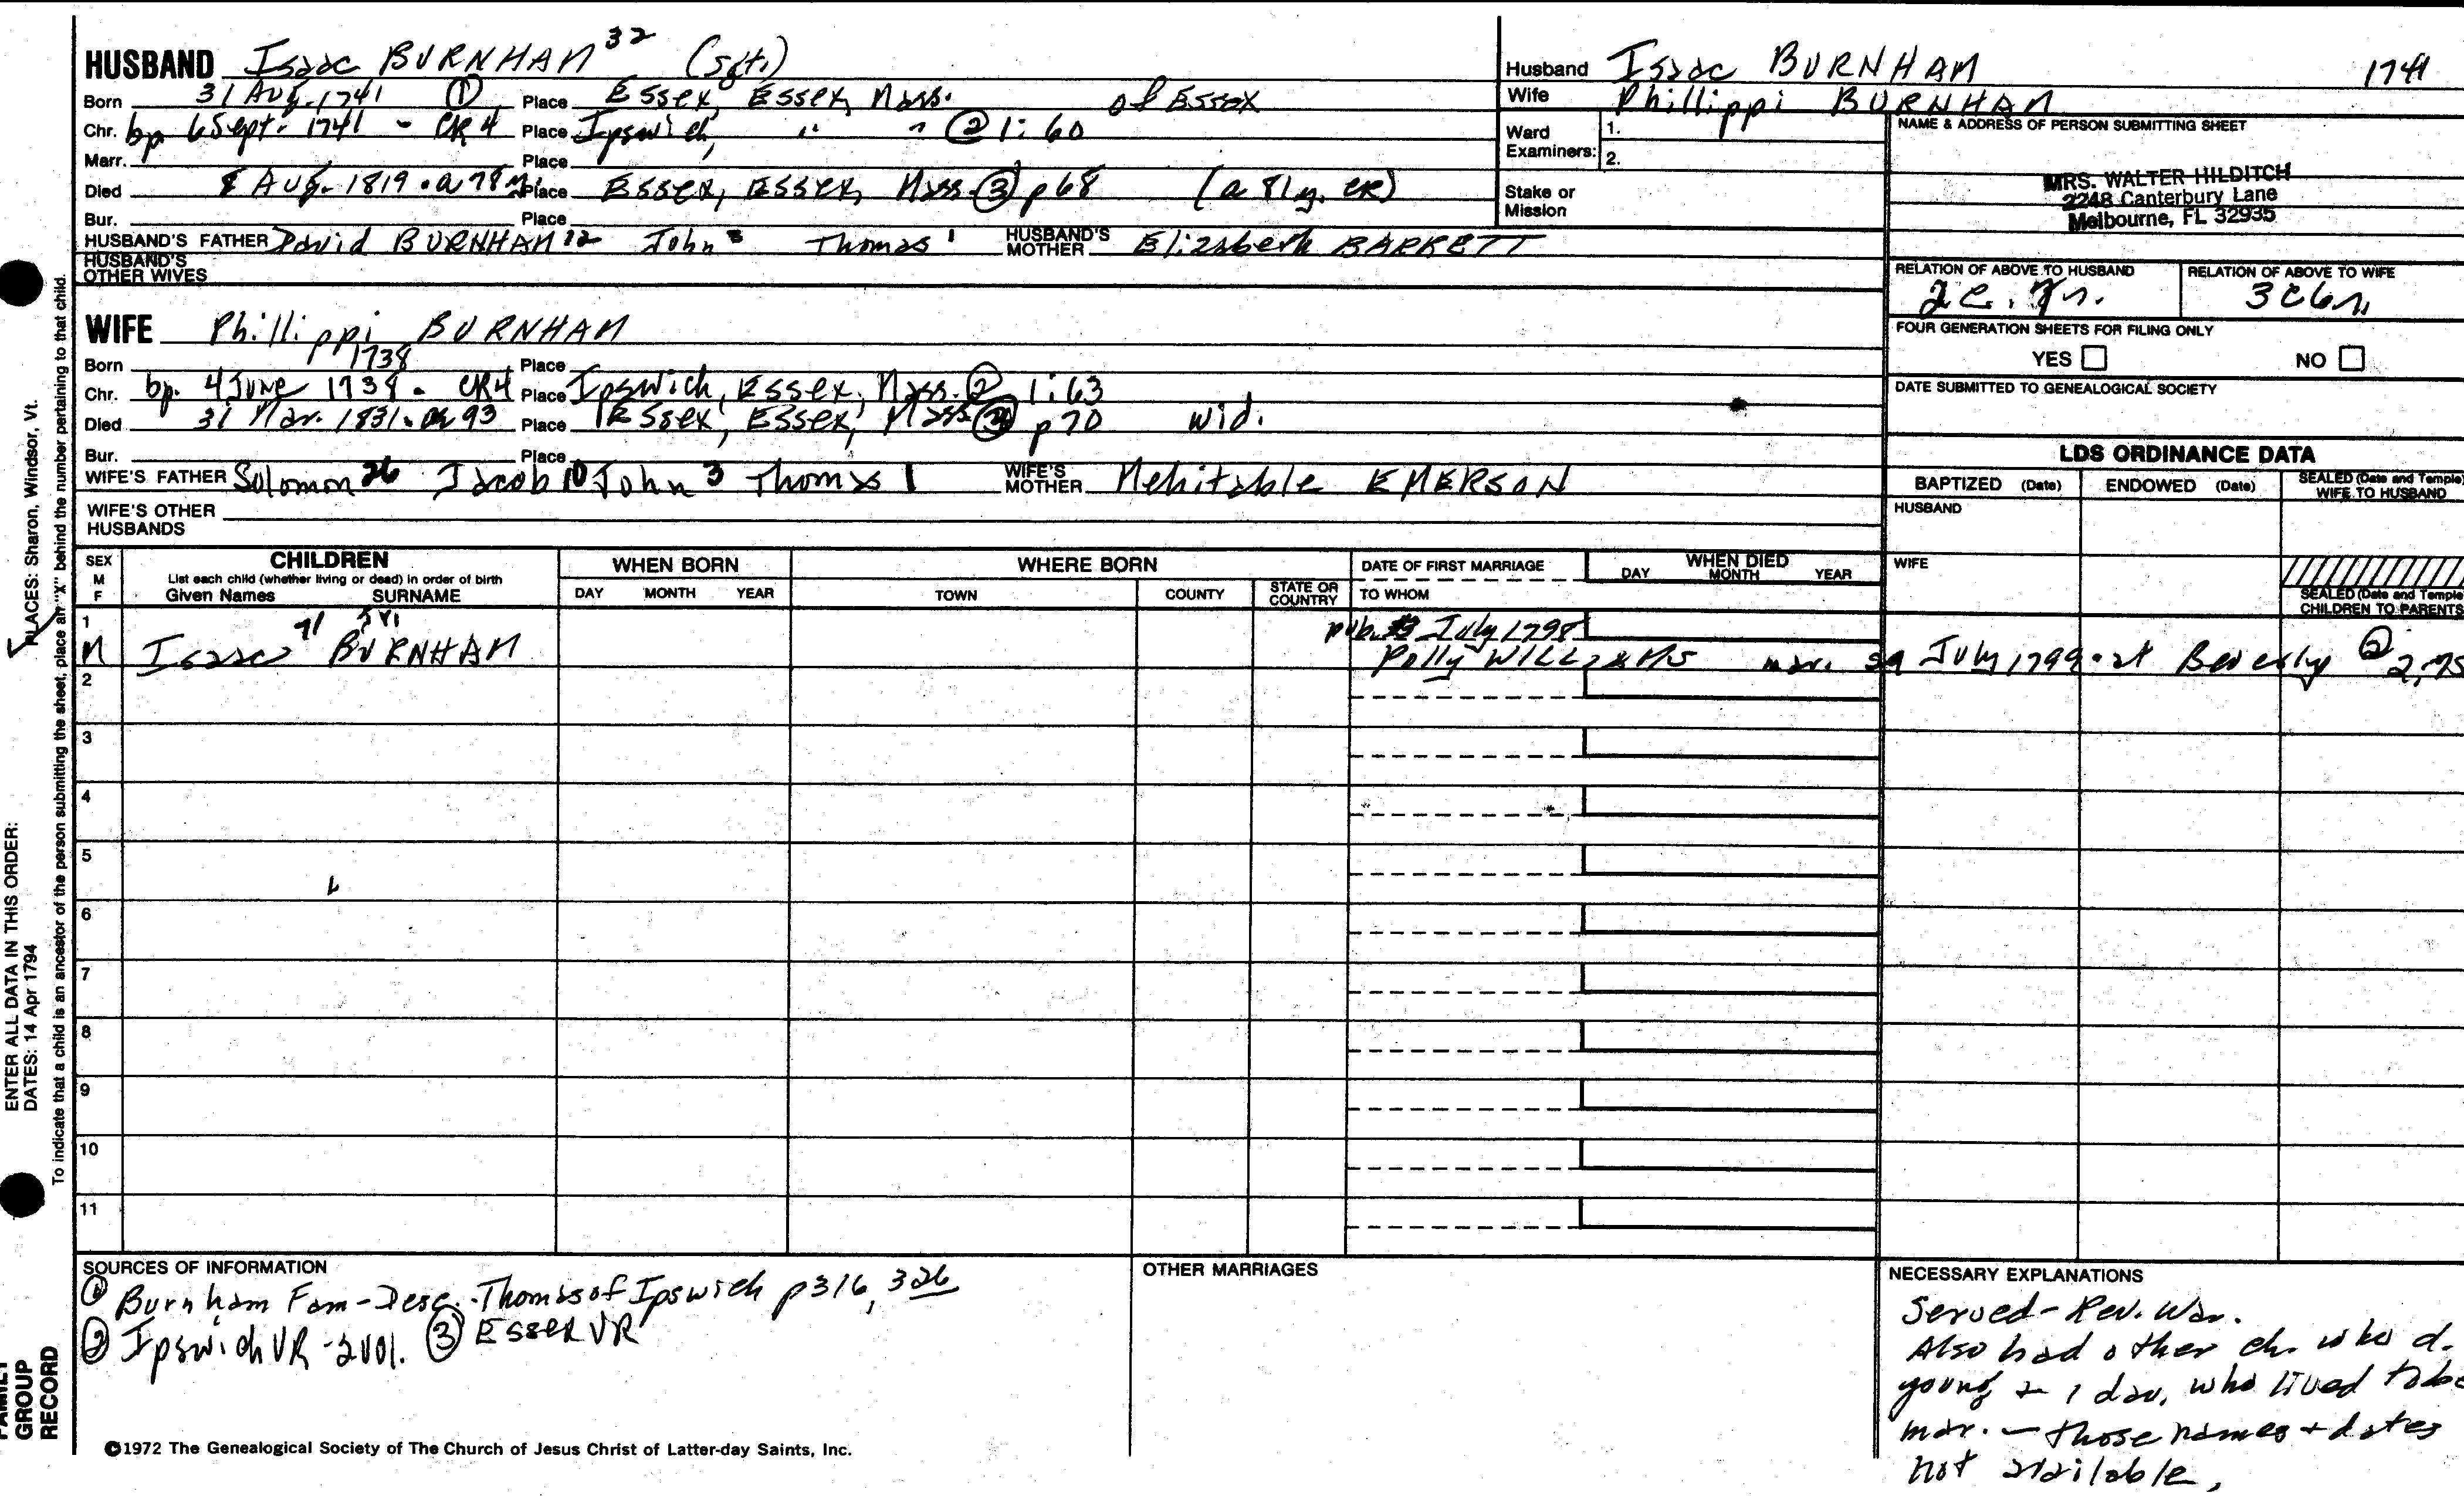 HUSBAND Isaac BURNHAM 32 (Sgt.)
Born 31 Aug. 1741 ① Place Essex, Essex, Mass. of Essex
Chr. bp. 6 Sept. 1741 - CR4 Place Ipswich, " " ② 1:60
Marr. Place
Died 8 Aug. 1819 . a 78 y. Place Essex, Essex, Mass. ③ p 68 (a 81 y. CR)
Bur. Place
HUSBAND'S FATHER David BURNHAM 12 John 3 Thomas 1 HUSBAND'S MOTHER Elizabeth BARRETT
HUSBAND'S OTHER WIVES
WIFE Phillippi BURNHAM
Born 1738 Place
Chr. bp. 4 June 1738 . CR4 Place Ipswich, Essex, Mass. ② 1:63
Died 31 Mar. 1831. a 93 Place Essex, Essex, Mass ③ p 70 wid.
Bur. Place
WIFE'S FATHER Solomon 26 Jacob 10 John 3 Thomas 1 WIFE'S MOTHER Mehitable EMERSON
WIFE'S OTHER HUSBANDS
Husband Isaac BURNHAM 1741
Wife Phillippi BURNHAM
Ward Examiners: 1.
2.
Stake or Mission
NAME & ADDRESS OF PERSON SUBMITTING SHEET
MRS. WALTER HILDITCH
2248 Canterbury Lane
Melbourne, FL 32935
RELATION OF ABOVE TO HUSBAND RELATION OF ABOVE TO WIFE
FOUR GENERATION SHEETS FOR FILING ONLY
YES NO
DATE SUBMITTED TO GENEALOGICAL SOCIETY
LDS ORDINANCE DATA
BAPTIZED (Date) ENDOWED (Date) SEALED (Date and Temple) WIFE TO HUSBAND
HUSBAND
WIFE
SEALED (Date and Temple) CHILDREN TO PARENTS
SEX M F
CHILDREN
List each child (whether living or dead) in order of birth
Given Names SURNAME
WHEN BORN
DAY MONTH YEAR
WHERE BORN
TOWN COUNTY STATE OR COUNTRY
DATE OF FIRST MARRIAGE
TO WHOM
WHEN DIED
DAY MONTH YEAR
1 71 pub. July 1798
M Isaac BURNHAM Polly WILLIAMS mar. 29 July 1799 . at Beverly ② 2,75
2
3
4
5
6
7
8
9
10
11
SOURCES OF INFORMATION
① Burnham Fam-Desc. Thomas of Ipswich p 316, 326
② Ipswich VR - 2 vol. ③ Essex VR
OTHER MARRIAGES
NECESSARY EXPLANATIONS
Served - Rev. War.
Also had other ch. who d.
young + 1 dau. who lived to be
mar. - those names + dates
not available.
©1972 The Genealogical Society of The Church of Jesus Christ of Latter-day Saints, Inc.
ENTER ALL DATA IN THIS ORDER:
DATES: 14 Apr 1794 PLACES: Sharon, Windsor, Vt.
To indicate that a child is an ancestor of the person submitting the sheet, place an "X" behind the number pertaining to that child.
FAMILY
GROUP
RECORD